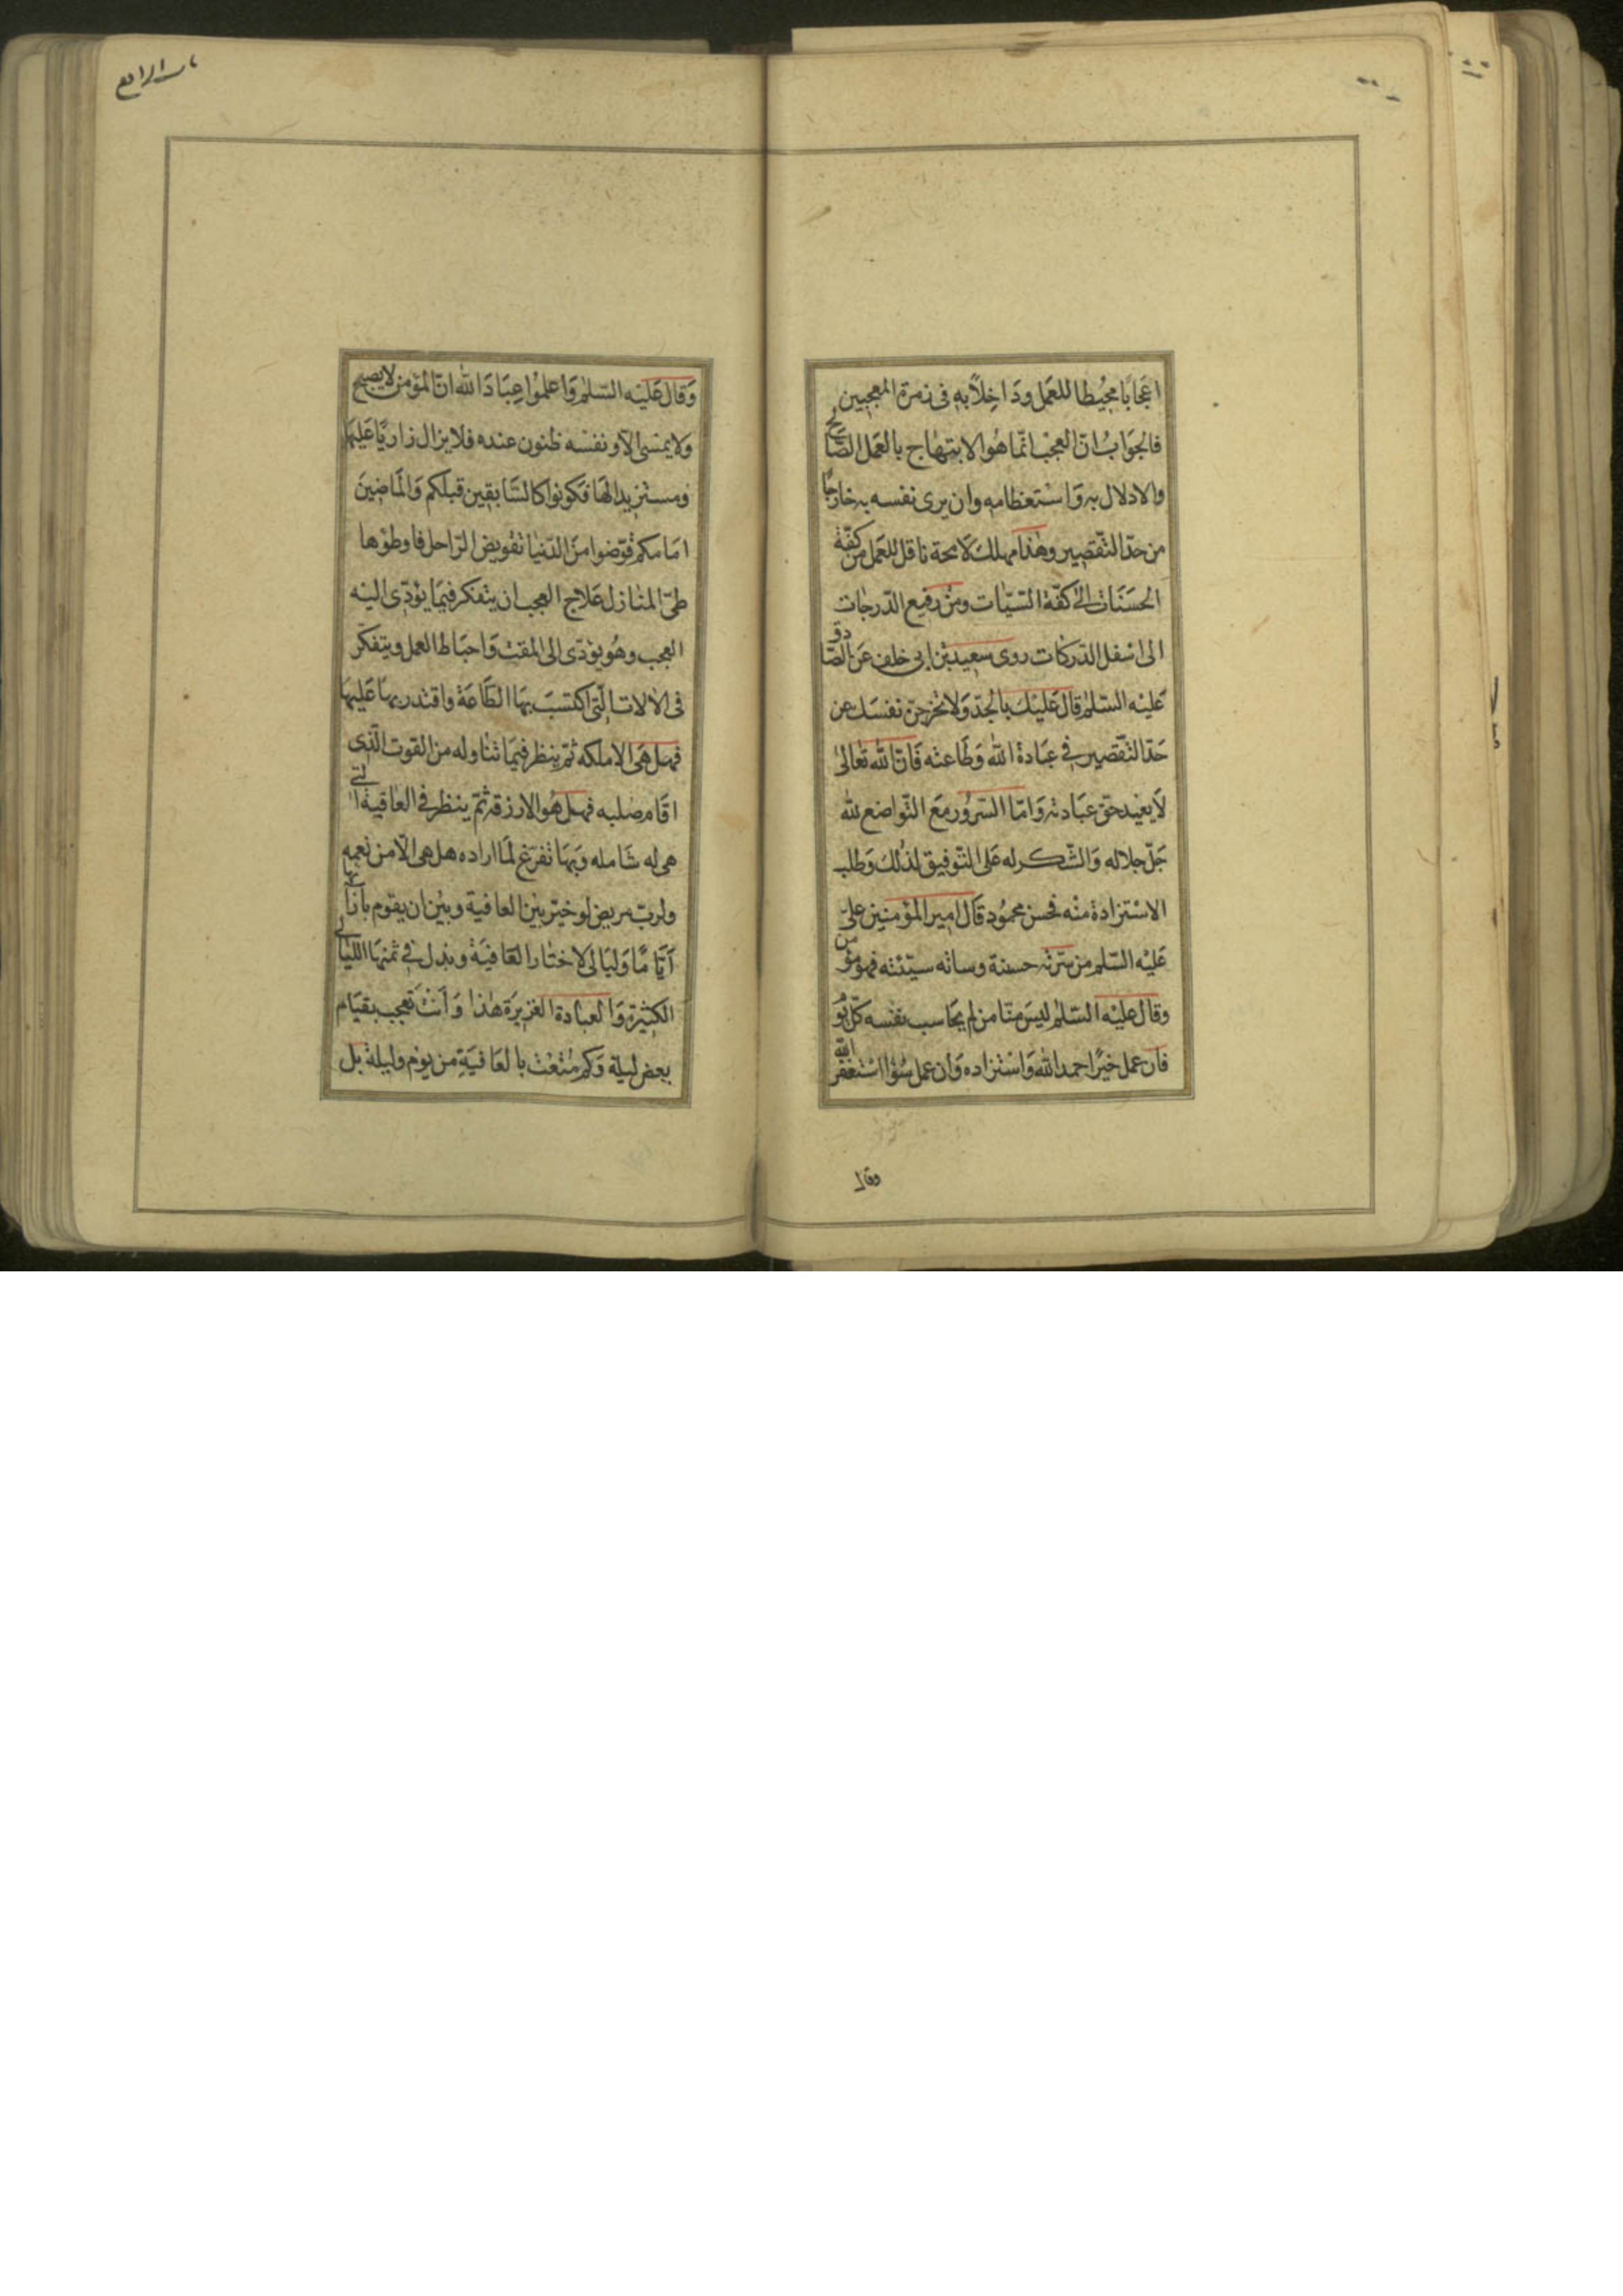 اعجابا محيطا للعمل وداخلا به فى زمرة المعجبين
فالجواب انّ العجب انّما هو الابتهاج بالعمل الصّالح
والادلال به واستعظامه وان يرى نفسه به خارجًا
من حدّ التّقصير وهذا مهلك لا محة ناقل للعمل من كفّة
الحسنات الى كفّة السّيّات ومن رفيع الدّرجات
الى اسفل الدّركات روى سعيد بن ابى خلف عن الصّادق
عليه السّلم قال عليك بالجدّ ولا تخرجنّ نفسك عن
حدّ التّقصير فى عبادة الله وطاعته فانّ الله تعالى
لا يعبد حق عبادته وامّا السّرور مع التّواضع لله
جلّ جلاله والشّكر له على التّوفيق لذلك وطلب
الاستزادة منه فحسن محمود قال امير المؤمنين علىّ
عليه السّلم من سرّته حسنة وساته سيّئته فهو مؤمن
وقال عليه السّلم ليس منّا من لم يحاسب نفسه كلّ يوم
فان عمل خيرًا حمد الله واستزاده وان عمل سوءا استغفر الله
وقال
باب الرابع
وقال عليه السّلم واعلموا عباد الله انّ المؤمن لا يصبح
ولا يمسى الّا ونفسه ظنون عنده فلا يزال زاريًا عليها
ومستزيدا لها فكونوا كالسّابقين قبلكم والماضين
امامكم قوّضوا من الدّنيا تقويض الرّاحل فاوطؤها
طىّ المنازل علاج العجب ان يتفكر فيما يؤدّى اليه
العجب وهو يؤدّى الى المقت واحباط العمل ويتفكّر
فى الالات الّتى اكتسب بها الطّاعة واقتدر بها عليها
فهل هى الا ملكه ثمّ ينظر فيما تناوله من القوت الّذى
اقام صلبه فهل هو الا رزقه ثمّ ينظر فى العافية الّتى
هى له شامله وبها تفرّغ لما اراده هل هى الّا من نعمه
ولربّ مريض لو خيّر بين العافية وبين ان يقوم بازائها
ايّامًا وليالى لاختار العافية وبذل فى ثمنها اللّيالى
الكثيرة والعبادة الغزيرة هذا وانت تعجب بقيام
بعض ليلة وكم متّعت بالعافية من يوم وليلة بل